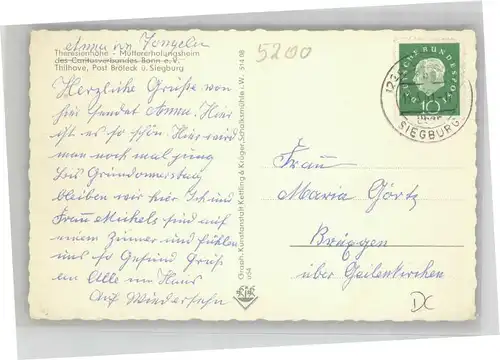 Anna
Theresienhöhe - Müttererholungsheim
des Caritasverbandes Bonn e.V.
Thilhove, Post Bröleck ü. Siegburg
Herzliche Grüße von
hier sendet Anna. Hier
ist es so schön. Hier wird
man noch mal jung
bis Gründonnerstag
bleiben wir hier Ich und
Frau Michels sind auf
einem Zimmer und fühlen
uns so Gesund Grüß
an Alle im Haus
Auf Wiedersehn
Graph. Kunstanstalt Kettling & Krüger, Schalksmühle i. W.
514 68
5200
DEUTSCHE BUNDESPOST
10
SIEGBURG
Frau
Maria Görtz
Brüggen
über Geilenkirchen
DC